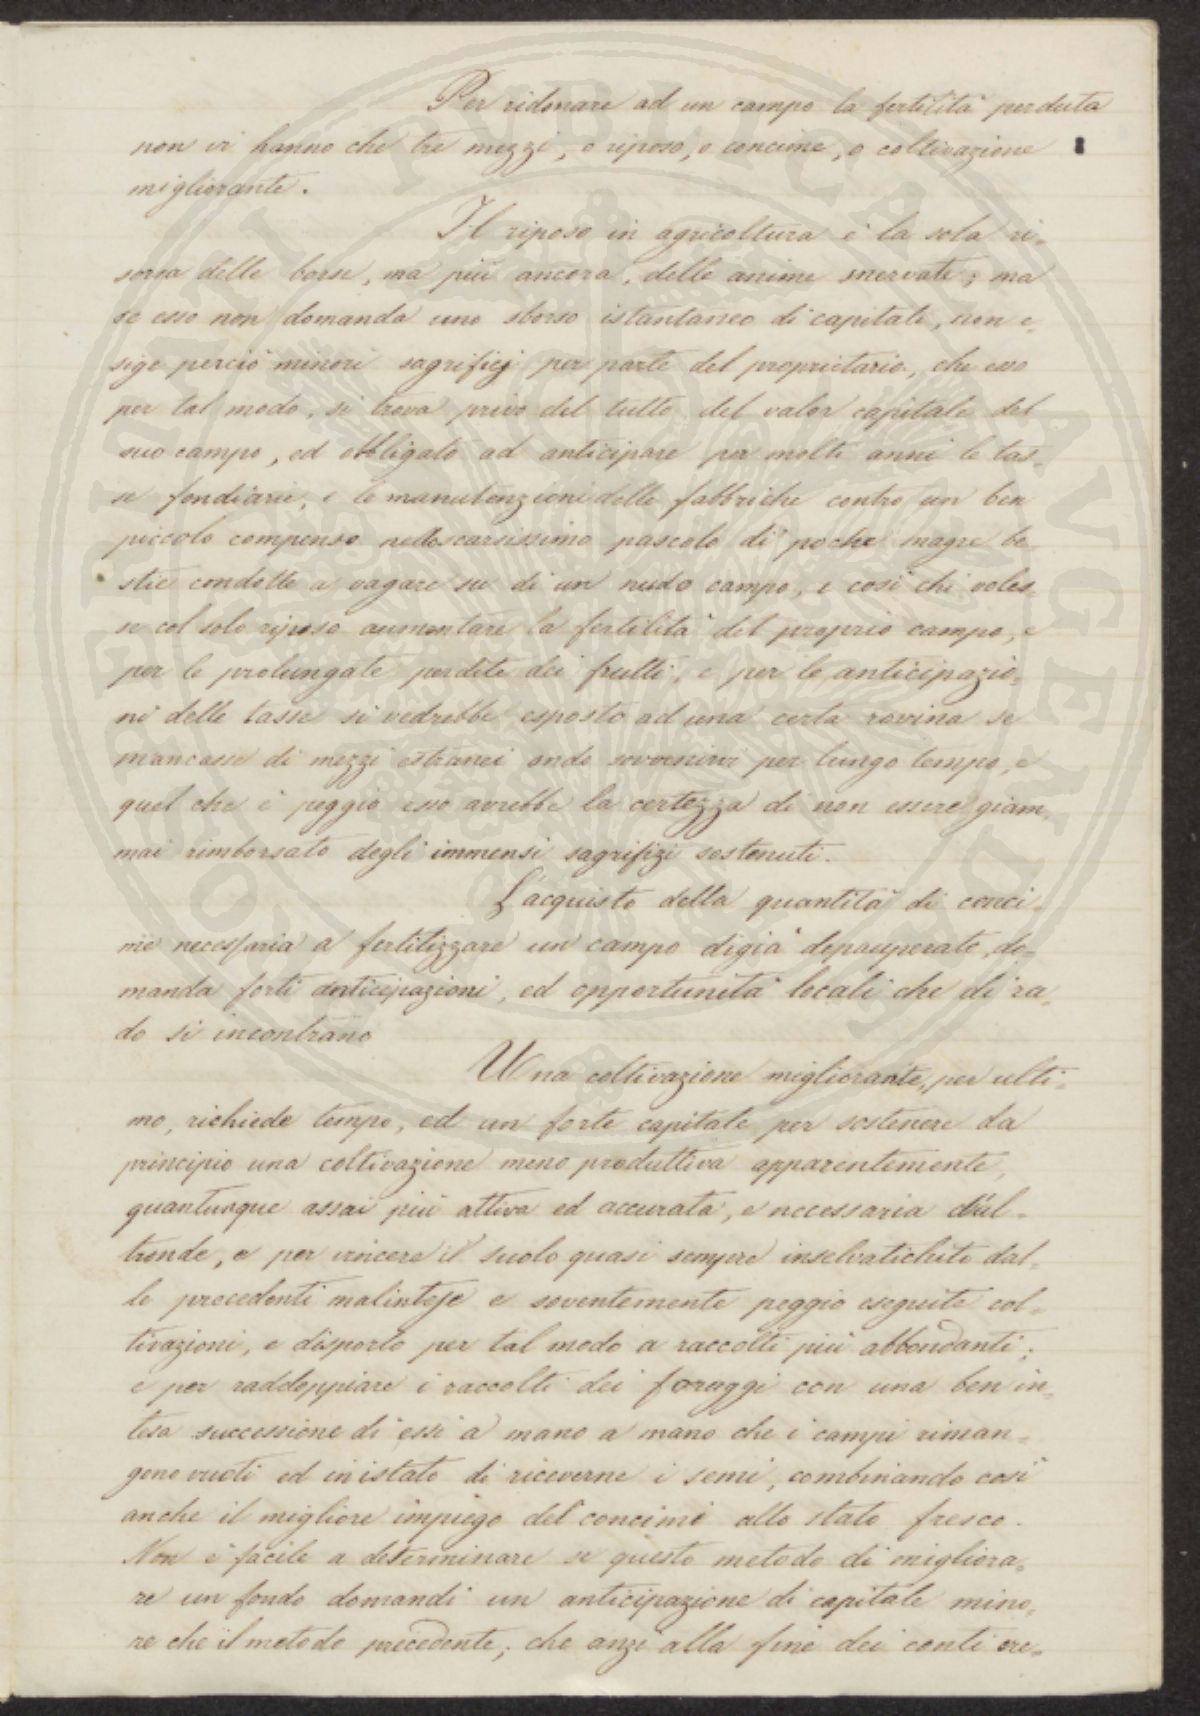 Per ridonare ad un campo la fertilità perduta
non vi hanno che tre mezzi, o riposo, o concime, o coltivazione
migliorante.
Il riposo in agricoltura è la sola ri-
sorsa delle borse, ma più ancora, delle anime snervate; ma
se esso non domanda uno sborso istantaneo di capitali, non e-
sige perciò minori sagrificj per parte del proprietario, che esso
per tal modo, si trova privo del tutto del valor capitale del
suo campo, ed obbligato ad anticipare per molti anni le tas-
se fondiarie, e le manutenzioni delle fabbriche contro un ben
piccolo compenso nello scarsissimo pascolo di poche magre be
stie condotte a vagare su di un nudo campo, e così chi voles
se col solo riposo aumentare la fertilità del proprio campo, e
per le prolungate perdite dei frutti, e per le anticipazio-
ni delle tasse si vedrebbe esposto ad una certa rovina se
mancasse di mezzi estranei onde sovvenirvi per lungo tempo, e
quel che è peggio esso avrebbe la certezza di non essere giam-
mai rimborsato degli immensi sagrifizi sostenuti.
L'acquisto della quantità di conci-
me necessaria a fertilizzare un campo digià depauperato, do-
manda forti anticipazioni, ed opportunità locali che di ra-
do si incontrano
Una coltivazione migliorante, per ulti-
mo, richiede tempo, ed un forte capitale per sostenere da
principio una coltivazione meno produttiva apparentemente,
quantunque assai più attiva ed accurata, e necessaria d'al-
tronde, e per vincere il suolo quasi sempre inselvatichito dal-
le precedenti malintese e soventemente peggio eseguite col-
tivazioni, e disporlo per tal modo a raccolti più abbondanti;
e per raddoppiare i raccolti dei foraggi con una ben in-
tesa successione di essi a mano a mano che i campi riman-
gono vuoti ed in istato di riceverne i semi, combinando così
anche il migliore impiego del concime allo stato fresco.
Non è facile a determinare se questo metodo di migliora-
re un fondo domandi un anticipazione di capitale mino-
re che il metodo precedente; che anzi alla fine dei conti cre-
OPPORTVNITATI PVBLICAE AVGENDAE